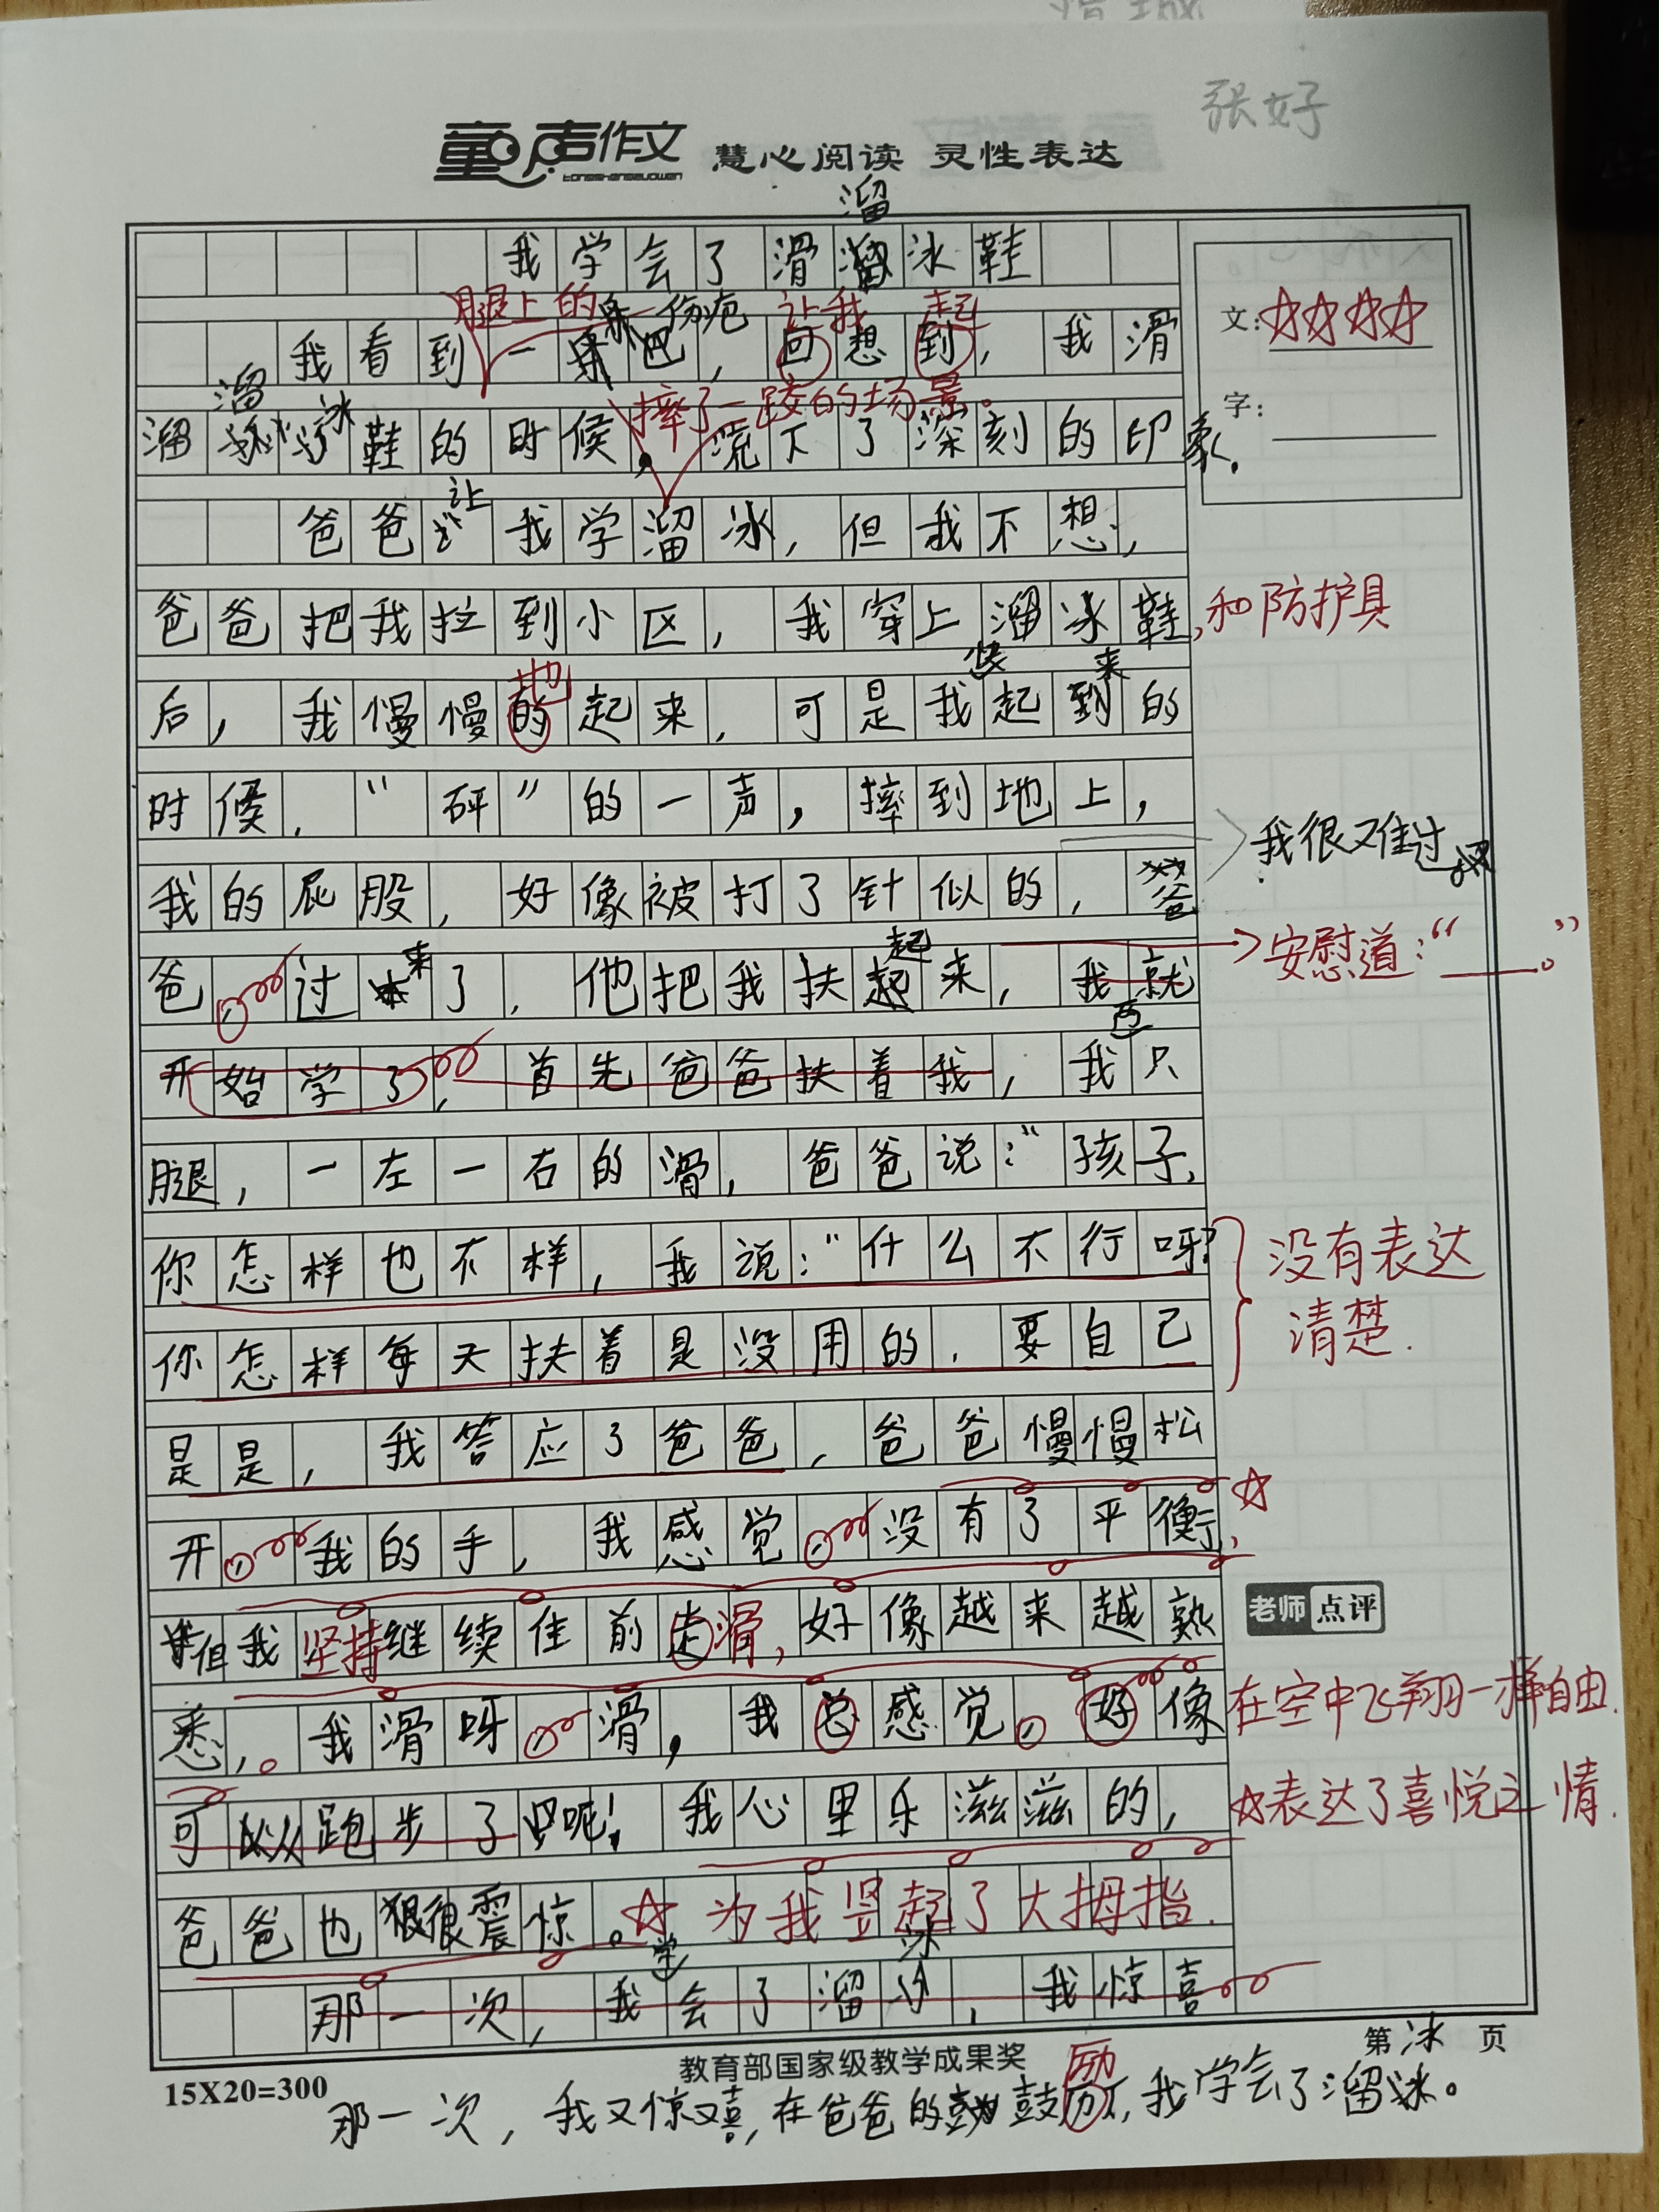 张好
童声作文 慧心阅读 灵性表达
tongshengzuowen
溜
我学会了滑溜冰鞋
腿上的 伤疤 让我 起
我看到一 巴，回想到，我滑
文：☆☆☆☆
溜 冰
摔了一跤的场景。
字：
溜 鞋的时候，流下了深刻的印象。
让
爸爸 我学溜冰，但我不想，
爸爸把我拉到小区，我穿上溜冰鞋，和防护具
地 快 来
后，我慢慢的起来，可是我起到的
时候，“砰”的一声，摔到地上，
我很又难过
我的屁股，好像被打了针似的，爸
来 起
安慰道：“____。”
爸，过 了，他把我扶起来，我就
开始学了，首先爸爸扶着我，我只
腿，一左一右的滑，爸爸说：“孩子，
你怎样也不样，我说：“什么不行呀？
没有表达
清楚.
你怎样每天扶着是没用的，要自己
是是，我答应了爸爸，爸爸慢慢松
开，我的手，我感觉，没有了平衡，☆
老师点评
但我坚持继续住前走滑，好像越来越熟
悉，。我滑呀，滑，我总感觉，好像在空中飞翔一样自由.
可以从跑步了呢！我心里乐滋滋的，☆表达了喜悦之情.
爸爸也狠很震惊。☆为我竖起了大拇指.
学 冰
那一次，我会了溜 ，我惊喜
15X20=300
教育部国家级教学成果奖
第 页
冰
励
那一次，我又惊又喜，在爸爸的鼓历下，我学会了溜冰。